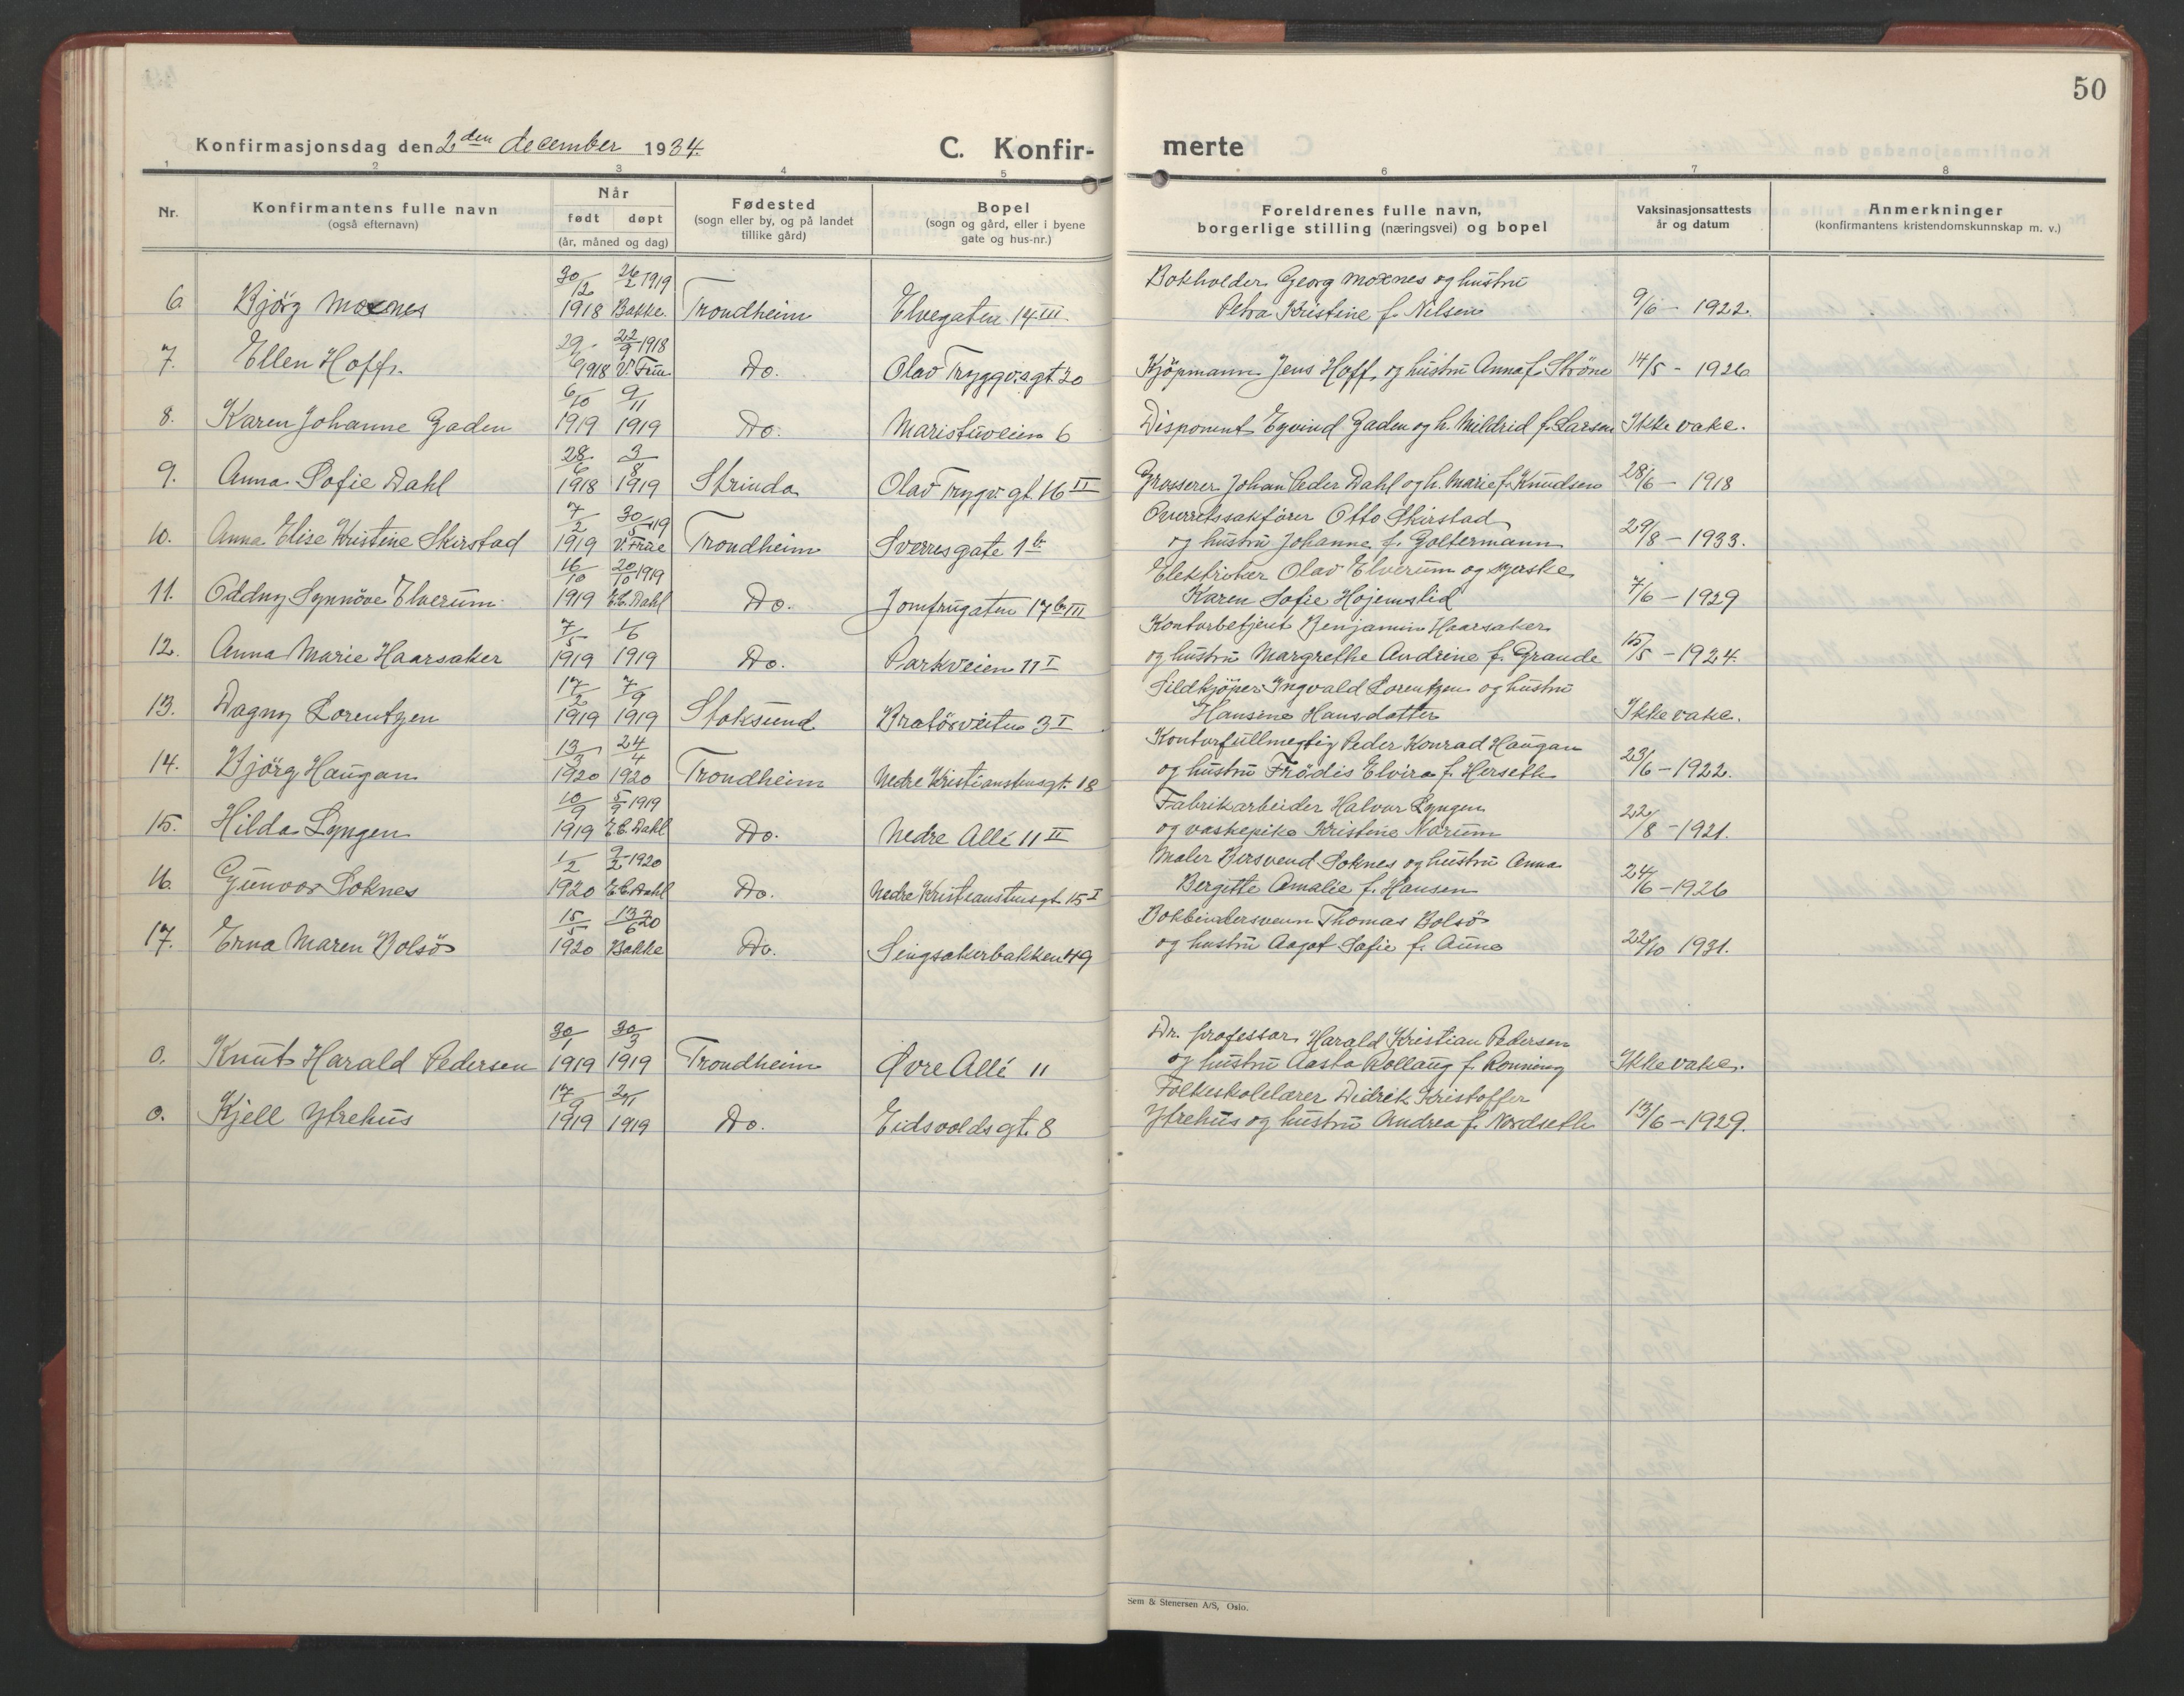 50
Konfirmasjonsdag den 2den december 1934.
C. Konfir-
merte
1 2 3 4 5 6 7 8
Nr.
Konfirmantens fulle navn
(også efternavn)
Når
født døpt
(år, måned og dag)
Fødested
(sogn eller by, og på landet
tillike gård)
Bopel
(sogn og gård, eller i byene
gate og hus-nr.)
Foreldrenes fulle navn,
borgerlige stilling (næringsvei) og bopel
Vaksinasjonsattests
år og datum
Anmerkninger
(konfirmantens kristendomskunnskap m. v.)
30/12 26/2 1919 Bokholder Georg Moxnes og hustru
6 Bjørg Moxnes 1918 Bakke. Trondheim Elvegaten 14 III. Petra Kristine f. Nilsen 9/6 - 1922.
29/ 22/9 1918
7. Ellen Hoff. 6 1918 V. Frue Do. Olav Tryggv.agt 20 Kjöpmann Jens Hoff og hustru Anna f. Ströne 14/5 - 1926
6/10 9/11
8. Karen Johanne Gaden 1919 1919 Do. Maristuveien 6 Disponent Eyvind Gaden og h. Mildrid f. Larsen Ikke vakc.
28/6 3/8
9. Anna Sofie Dahl 1918 1919 Strinda Olav Trygv gt. 16 II Grosserer Johan Peder Dahl og h. Marie f. Knudsen 28/6 - 1918
7/2 30/5 19 Overretssakförer Otto Skirstad
10. Anna Elise Kristine Skirstad 1919 V. Frue Trondheim Sverresgate 1 b og hustru Johanne f. Goltermann 29/8 - 1933.
16/10 20/10 1919 Elektriker Olav Elverum og syerske
11. Oddny Synnöve Elverum 1919 E.C. Dahl Do. Jomfrugaten 17 b III Karen Sofie Hojemslid 7/6 - 1929
7/5 1/6 Kontorbetjent Benjamin Haarsaker
12. Anna Marie Haarsaker 1919 1919 Do. Parkveien 11 I og hustru Margrethe Andrine f. Grande 15/5 - 1924.
17/2 7/9 Sildkjöper Ingvald Lorentzen og hustru
13. Dagny Lorentzen 1919 1919 Stoksund Bratörveiten 3 I Hansine Hansdatter Ikke vakc.
13/3 24/4 Kontorfullmegtig Peder Konrad Haugan
14. Björg Haugan 1920 1920 Trondheim Nedre Kristianstensgt. 18 og hustru Frödis Elvira f. Herseth 23/6 - 1922.
10/9 5/9 1919 Fabrikarbeider Halvor Lyngen
15. Hilda Lyngen 1919 E.C. Dahl Do. Nedre Allé 11 II og vaskepike Kristine Narum 22/8 - 1921.
1/2 9/2 1920 Maler Bersvend Soknes og hustru Anna
16. Gunvor Soknes 1920 E.C. Dahl Do. Nedre Kristianstensgt. 15 I Bergitte Amalie f. Hansen 24/6 - 1926
15/5 13/6 20 Bokbindersvenn Thomas Bolsö
17. Erna Maren Bolsö 1920 Bakke Do. Singsakerbakken 49 og hustru Aagot Sofie f. Aune 22/10 1931.
30/1 30/3 Dr. professor Harald Kristian Pedersen
0. Knut Harald Pedersen 1919 1919 Trondheim Øvre Allé 11 og hustru Aasta Rollaug f. Ronning Ikke vakc.
17/9 2/11 Folkeskolelærer Didrik Kristoffer
0. Kjell Ytrehus 1919 1919 Do. Eidsvoldsgt. 8 Ytrehus og hustru Andrea f. Nordseth 13/6 - 1929.
Sem & Stenersen A/S, Oslo.